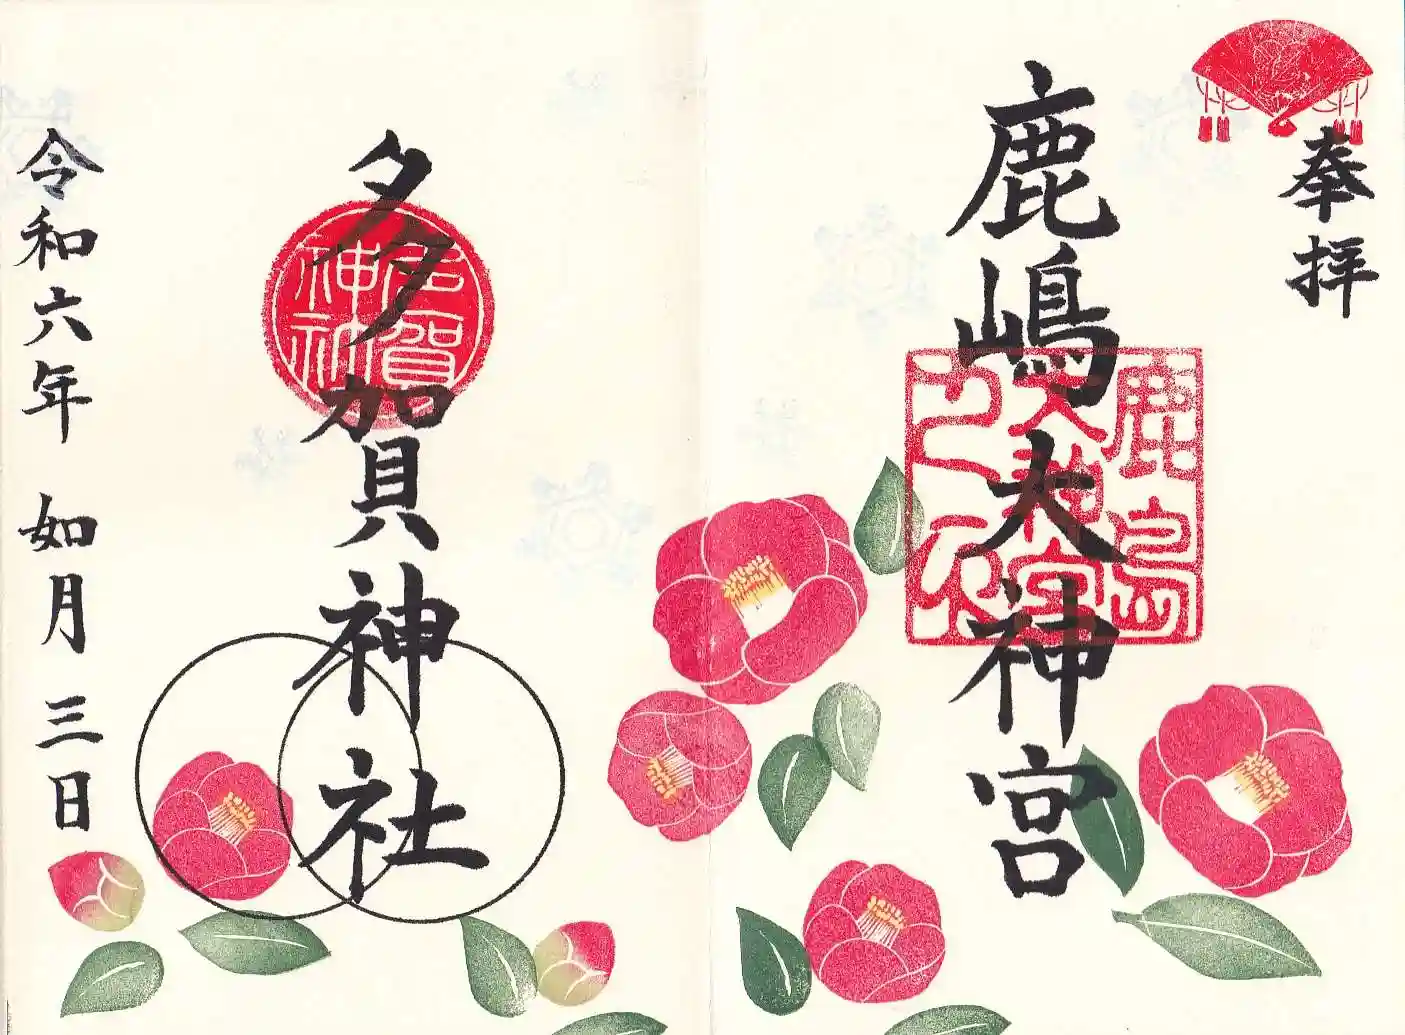 奉拝
鹿嶋大神宮
鹿島
大神宮
多賀神社
多賀
神社
令和六年 如月 三日